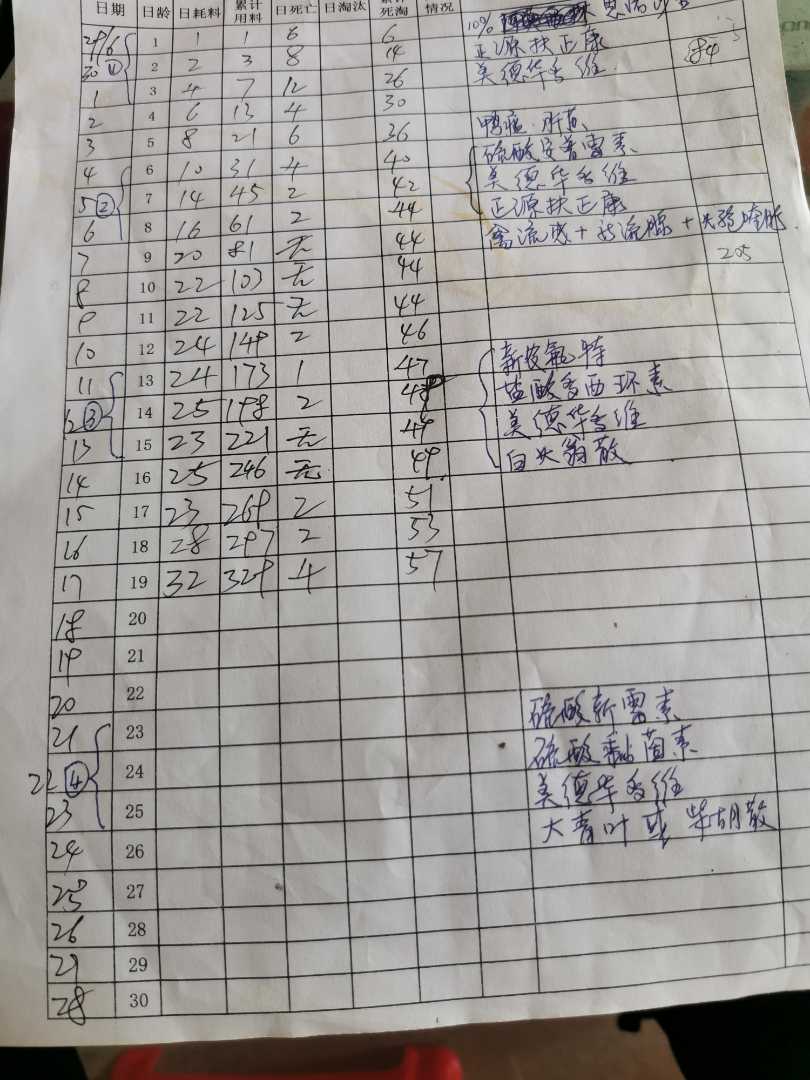 日期 日龄 日耗料 累计用料 日死亡 日淘汰 累计死淘 情况
29/6 1 1 1 6 6 10%
30 ① 2 2 3 8 14 正源扶正康
1 3 4 7 12 26 美德华多维 84
2 4 6 13 4 30
3 5 8 21 6 36 鸭瘟·肝炎
4 6 10 31 4 40 硫酸安普霉素
5 ② 7 14 45 2 42 美德华多维
6 8 16 61 2 44 正源扶正康
7 9 20 81 无 44 禽流感+
8 10 22 103 无 44 205
9 11 22 125 无 44
10 12 24 149 2 46
11 13 24 173 1 47
12 ③ 14 25 198 2 49 盐酸多西环素
13 15 23 221 无 49 美德华多维
14 16 25 246 无 49 白头翁散
15 17 23 269 2 51
16 18 28 297 2 53
17 19 32 329 4 57
18 20
19 21
20 22
21 23 硫酸新霉素
22 ④ 24 硫酸黏菌素
23 25 美德华多维
24 26 大青叶或柴胡散
25 27
26 28
27 29
28 30